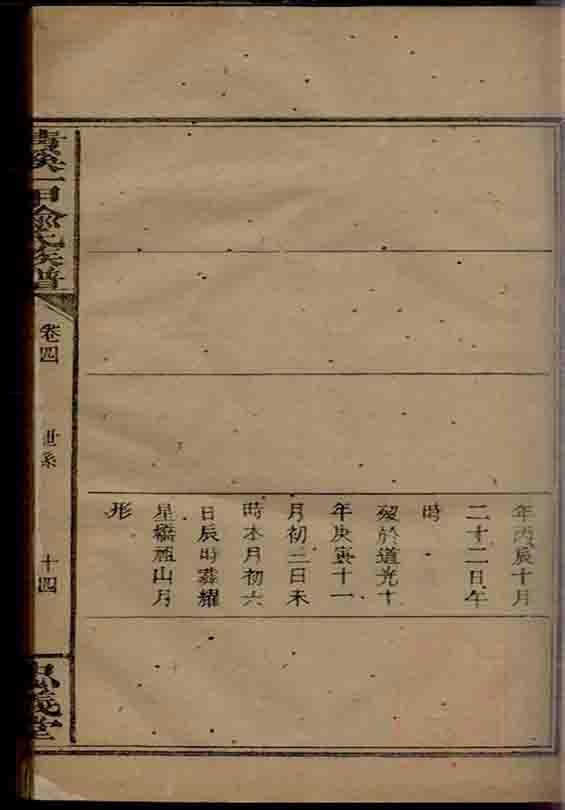 年丙辰十月
二十二日午
時
歿於道光十
年庚寅十一
月初三日未
時本月初六
日辰時葬耀
星橋 山月
形
一甲 氏族譜
卷四
世系
十四
義堂